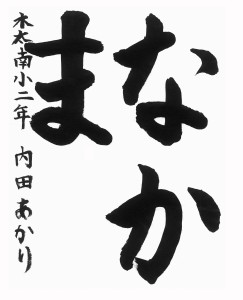 なか
ま
木太南小二年 内田あかり